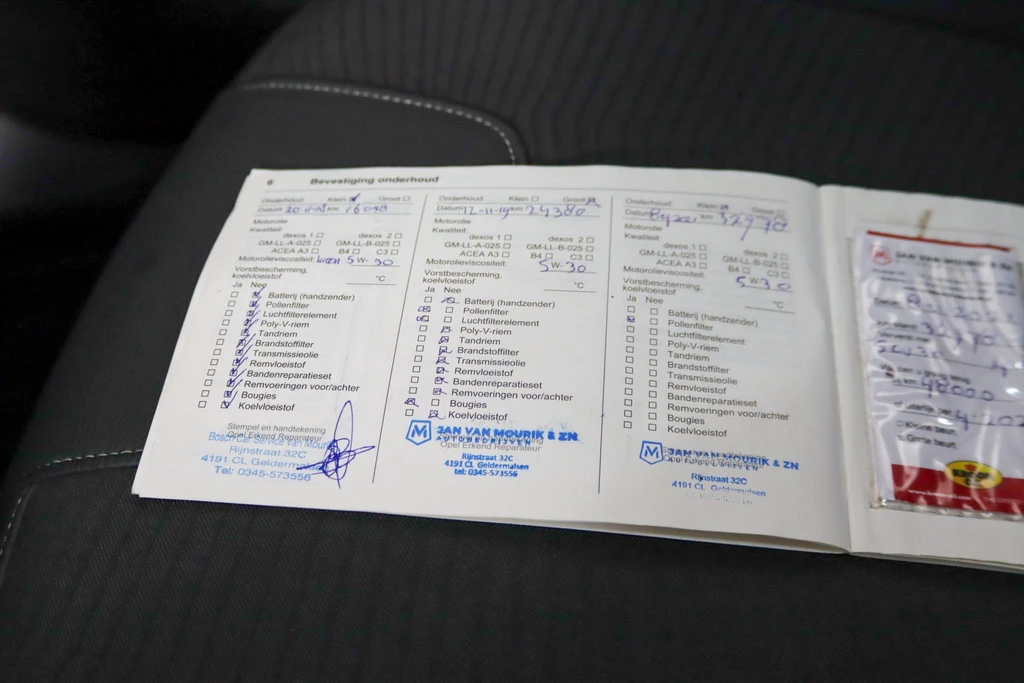 6 Bevestiging onderhoud
Onderhoud: Klein Groot
Datum km
Motorolie
Kwaliteit:
dexos 1 dexos 2
GM-LL-A-025 GM-LL-B-025
ACEA A3 B4 C3
Motorolieviscositeit: 5 W- 30
Vorstbescherming,
koelvloeistof °C
Ja Nee
Batterij (handzender)
Pollenfilter
Luchtfilterelement
Poly-V-riem
Tandriem
Brandstoffilter
Transmissieolie
Remvloeistof
Bandenreparatieset
Remvoeringen voor/achter
Bougies
Koelvloeistof
Stempel en handtekening
Opel Erkend Reparateur
Bosch Car Service van Mourik
Rijnstraat 32C
4191 CL Geldermalsen
Tel: 0345-573556
Onderhoud: Klein Groot
Datum 12-11-19 km 24380
Motorolie
Kwaliteit:
dexos 1 dexos 2
GM-LL-A-025 GM-LL-B-025
ACEA A3 B4 C3
Motorolieviscositeit: 5W-30
Vorstbescherming,
koelvloeistof °C
Ja Nee
Batterij (handzender)
Pollenfilter
Luchtfilterelement
Poly-V-riem
Tandriem
Brandstoffilter
Transmissieolie
Remvloeistof
Bandenreparatieset
Remvoeringen voor/achter
Bougies
Koelvloeistof
JAN VAN MOURIK & ZN
AUTOBEDRIJVEN
Opel Erkend Reparateur
Rijnstraat 32C
4191 CL Geldermalsen
tel: 0345-573556
Onderhoud: Klein Groot
Datum km 32970
Motorolie
Kwaliteit:
dexos 1 dexos 2
GM-LL-A-025 GM-LL-B-025
ACEA A3 B4 C3
Motorolieviscositeit: 5W-30
Vorstbescherming,
koelvloeistof °C
Ja Nee
Batterij (handzender)
Pollenfilter
Luchtfilterelement
Poly-V-riem
Tandriem
Brandstoffilter
Transmissieolie
Remvloeistof
Bandenreparatieset
Remvoeringen voor/achter
Bougies
Koelvloeistof
JAN VAN MOURIK & ZN
Rijnstraat 32C
4191 CL Geldermalsen
km 48000
Kleine beurt
Grote beurt